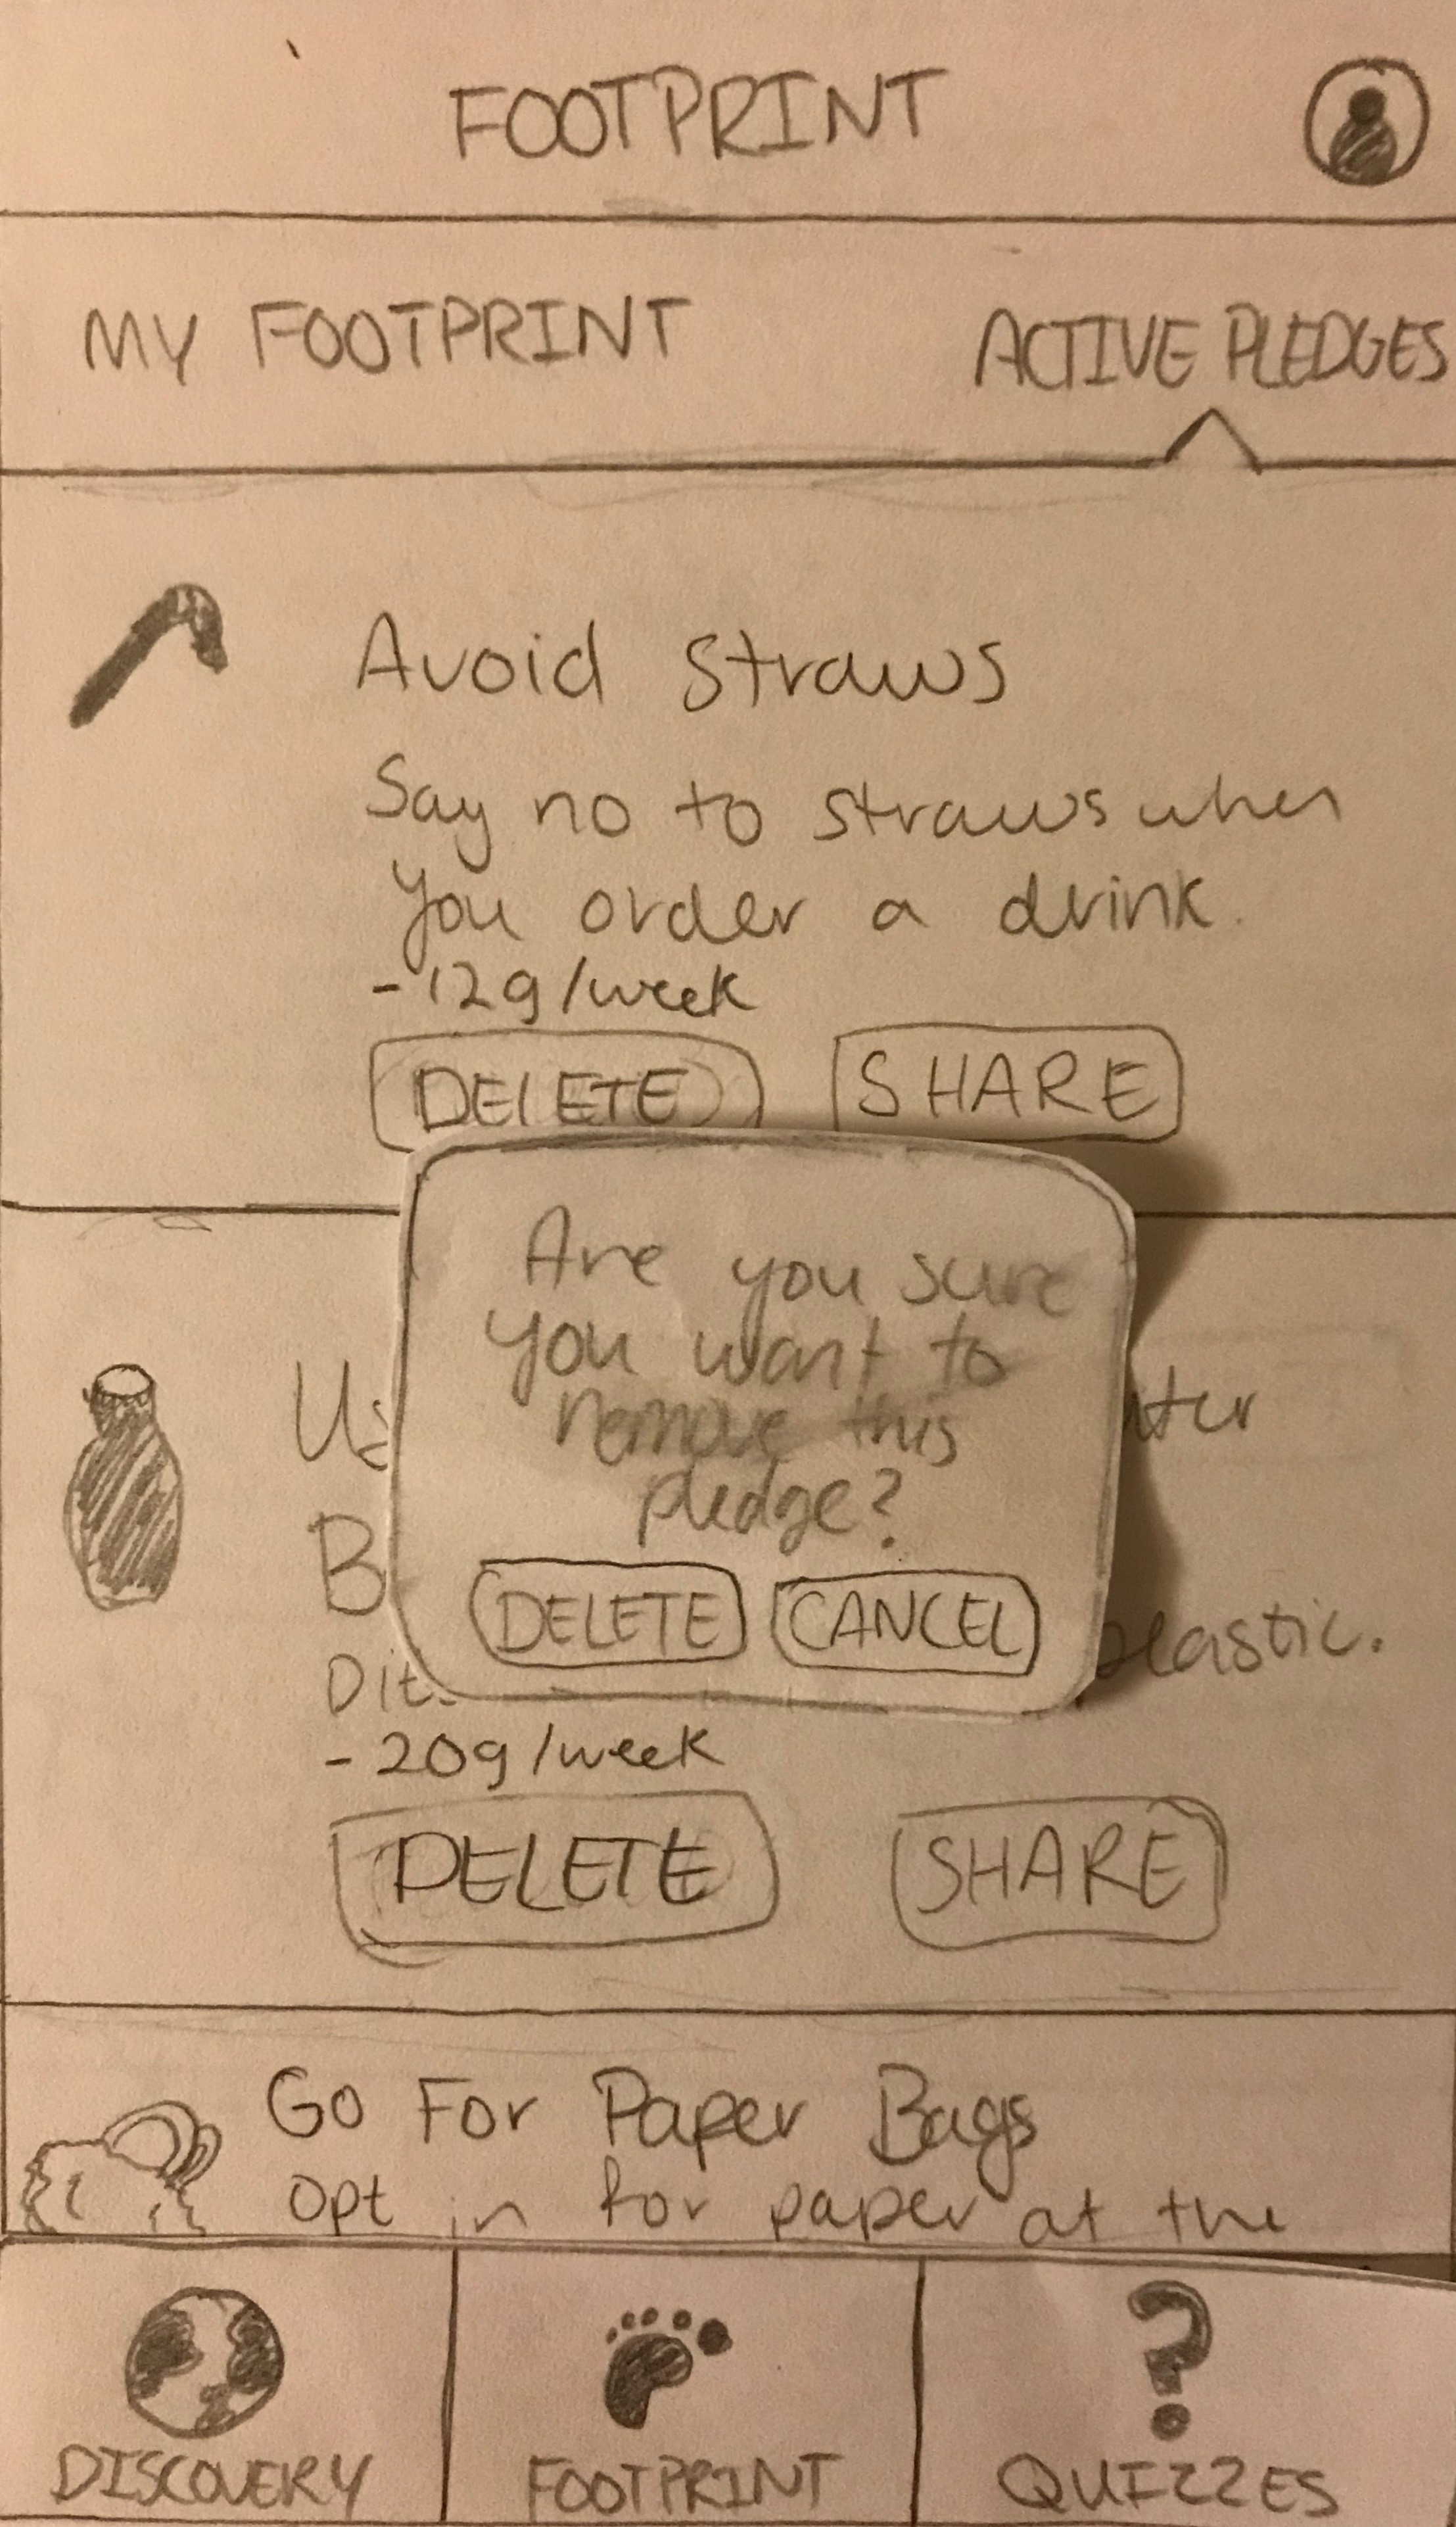 FOOTPRINT
MY FOOTPRINT
ACTIVE PLEDGES
Avoid Straws
Say no to straws when
you order a drink.
-12g/week
DELETE
SHARE
Are you sure
you want to
remove this
pledge?
DELETE
CANCEL
plastic.
-20g/week
DELETE
SHARE
Go For Paper Bags
Opt in for paper at the
DISCOVERY
FOOTPRINT
QUIZZES